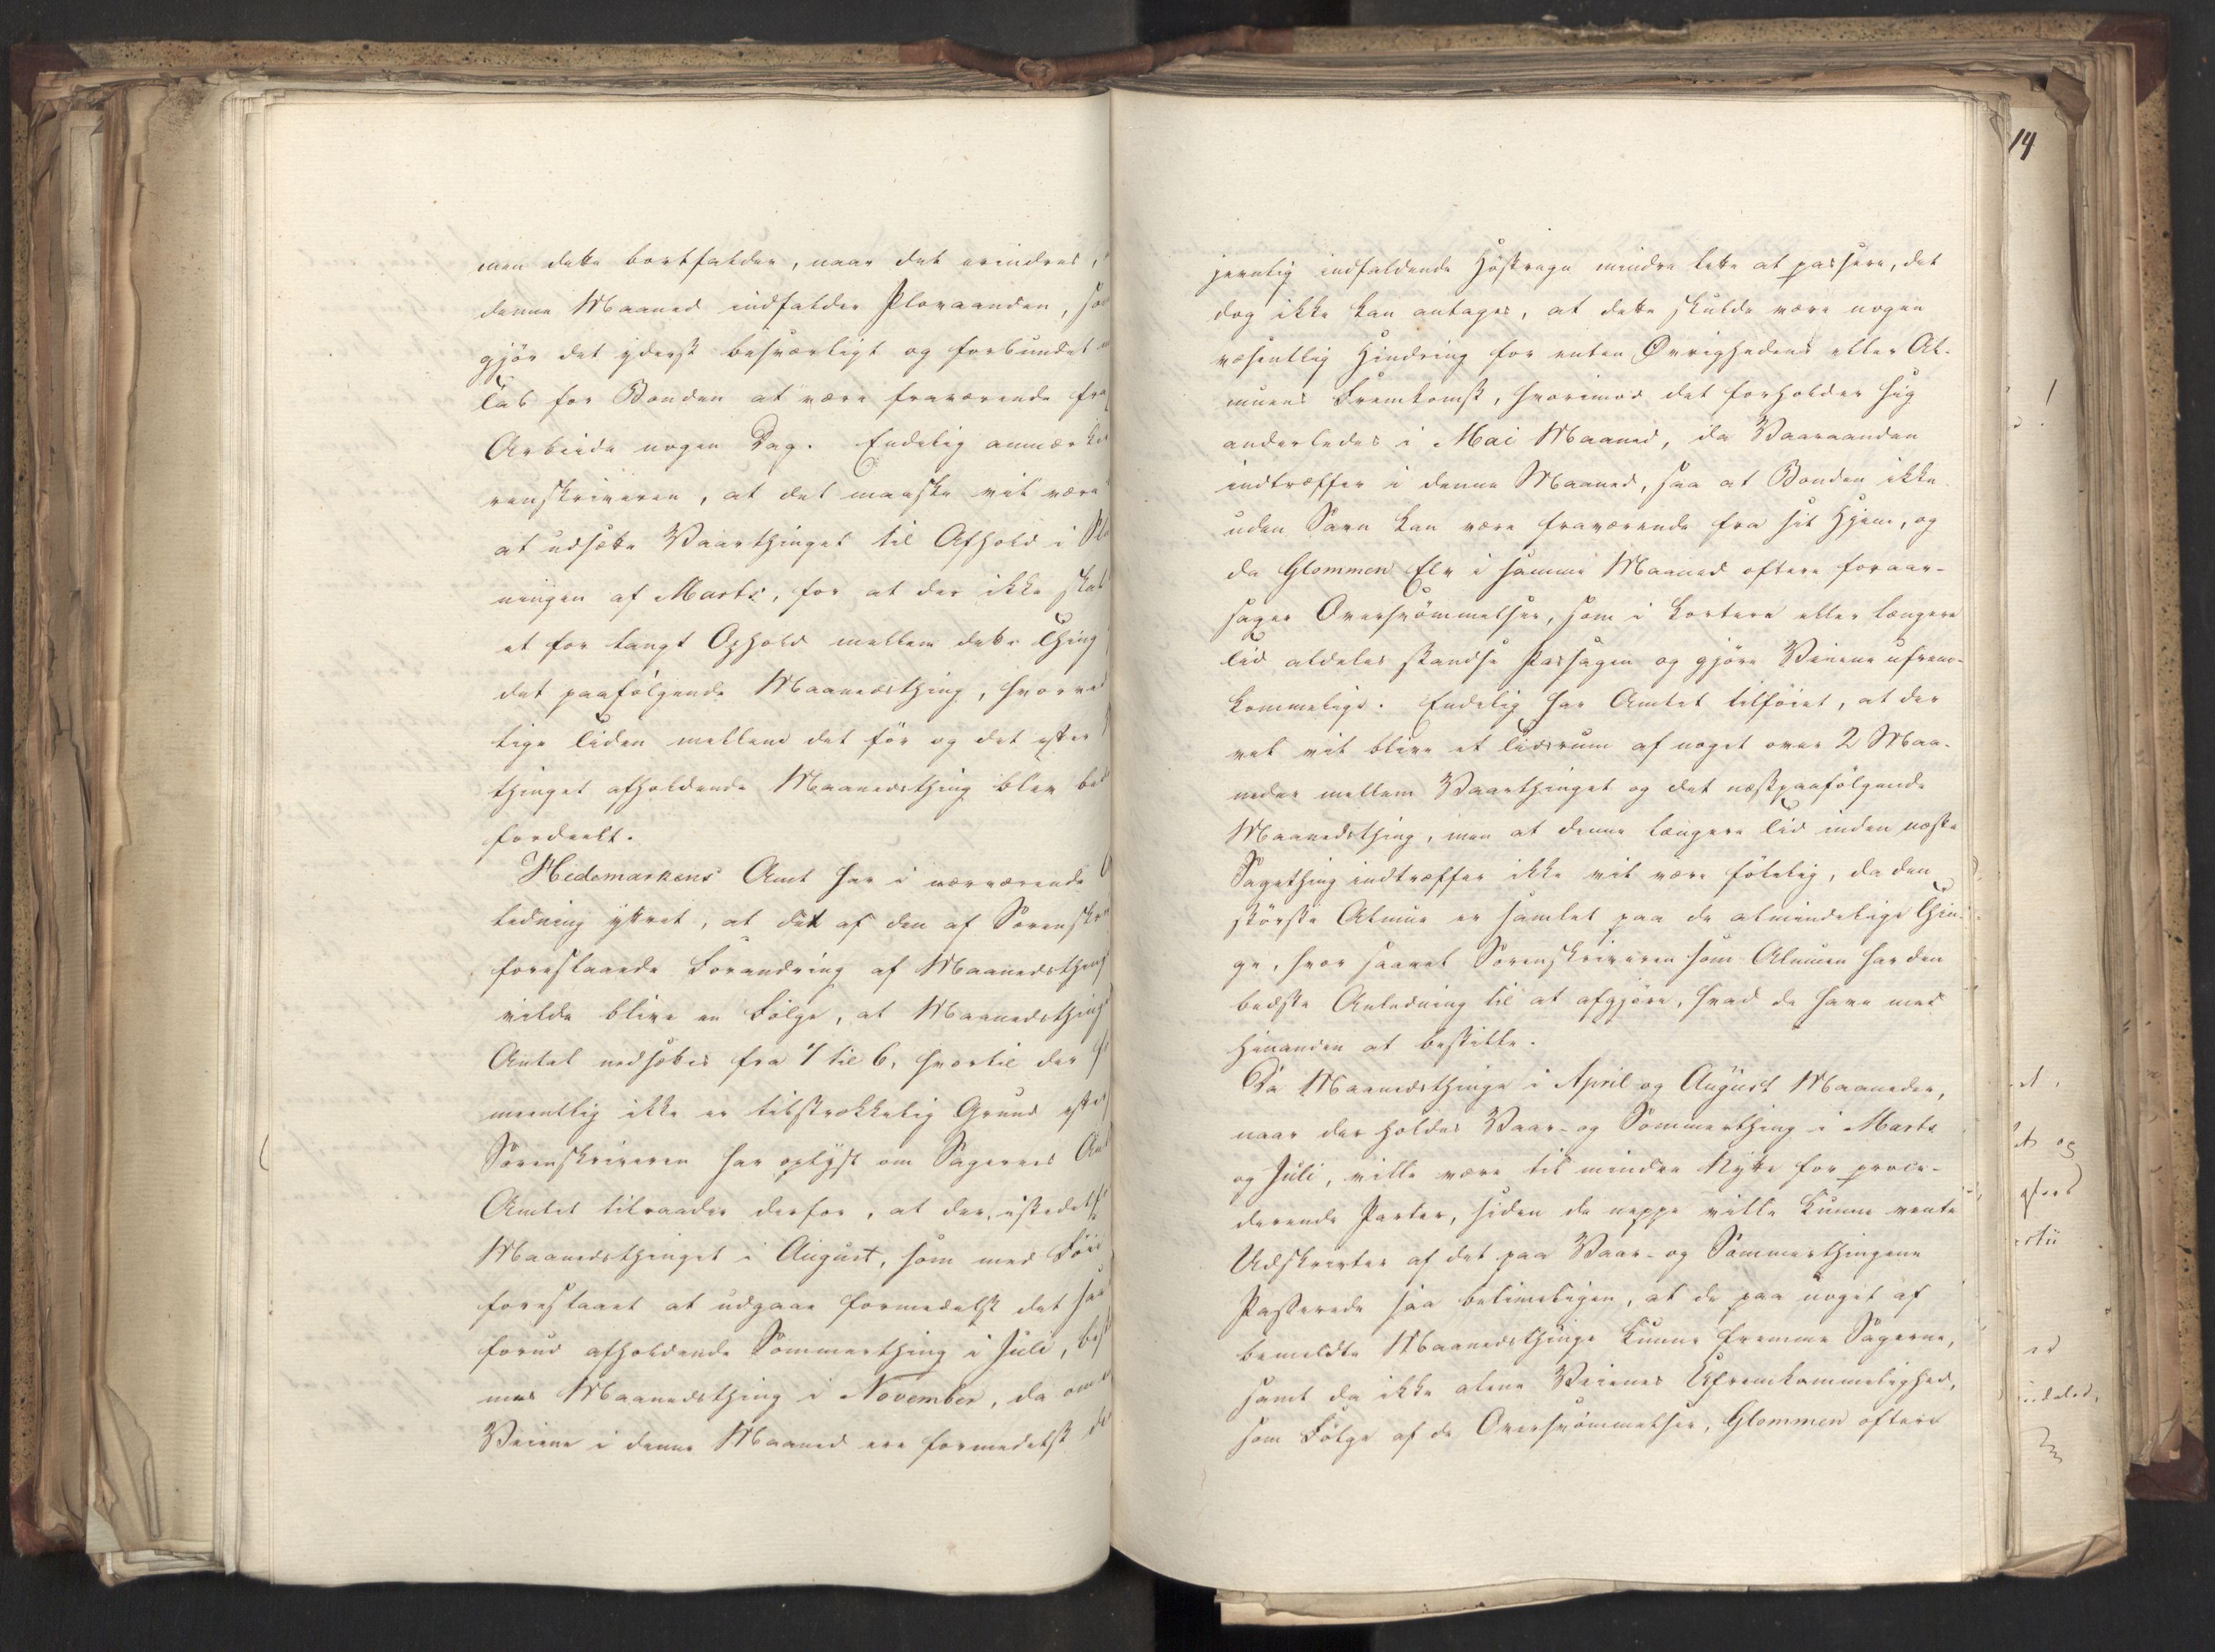 men dette bortfalder, naar det erindres,
denne Maaned indfalder Plovaanden, som
gjör det yderst besværligt og forbundet
Tab for Bonden at være fraværende fra
Arbeide nogen Dag. Endelig anmærker
renskriveren, at det maaske vil være
at udsætte Vaarthinget til Afhold i
ningen af Marts, for at der ikke skal
et for langt Ophold mellem dette Thing
det paafölgende Maanedsthing, hvorved
lige Tiden mellem det för og det efter
thinget afholdende Maanedsthing blev
fordeelt.
Hedemarkens Amt har i nærværende
ledning yttret, at det af den af Sorenskri
foreslaaede Forandring af Maanedsthing
vilde blive en Fölge, at Maanedsthing
Antal nedsættes fra 7 til 6, hvortil der
meentlig ikke er tilstrækkelig Grund efter
Sorenskriveren har oplyst om Sagernes
Amtet tilraader derfor, at der, istedetfor
Maanedsthinget i August, som med Föie
foreslaaet at udgaae formedelst det
forud afholdende Sommerthing i Juli,
mes Maanedsthing i November, da om
Veiene i denne Maaned ere formedelst
14
jevnlig indfaldende Höstregn mindre lette at passere, det
dog ikke kan antages, at dette skulde være nogen
væsentlig Hindring for enten Øvrighedens eller Al-
muens Fremkomst, hvorimod det forholder sig
anderledes i Mai Maaned, da Vaaraanden
indtræffer i denne Maaned, saa at Bonden ikke
uden Savn kan være fraværende fra sit Hjem, og
da Glommen Elv i samme Maaned oftere foraar-
sager Oversvömmelser, som i kortere eller længere
Tid aldeles standse Passagen og gjöre Veiene ufrem-
kommelige. Endelig har Amtet tilföiet, at der
vel vil blive et Tidsrum af noget over 2 Maa-
neder mellem Vaarthinget og det næstpaafölgende
Maanedsthing, men at denne længere Tid inden næste
Sagething indtræffer ikke vil være fölelig, da den
störste Almue er samlet paa de almindelige Thin-
ge, hvor saavel Sorenskriveren som Almuen har den
bedste Anledning til at afgjöre, hvad de have med
hinanden at bestille.
Da Maanedsthinge i April og August Maaneder,
naar der holdes Vaar- og Sommerthing i Marts
og Juli, ville være til mindre Nytte for proce-
derende Parter, siden de neppe ville kunne vente
Udskrivter af det paa Vaar- og Sommerthingene
Passerede saa betimeligen, at de paa noget af
bemeldte Maanedsthinge kunne fremme Sagerne,
samt da ikke alene Veienes Ufremkommelighed,
som Fölge af de Oversvömmelser, Glommen oftere